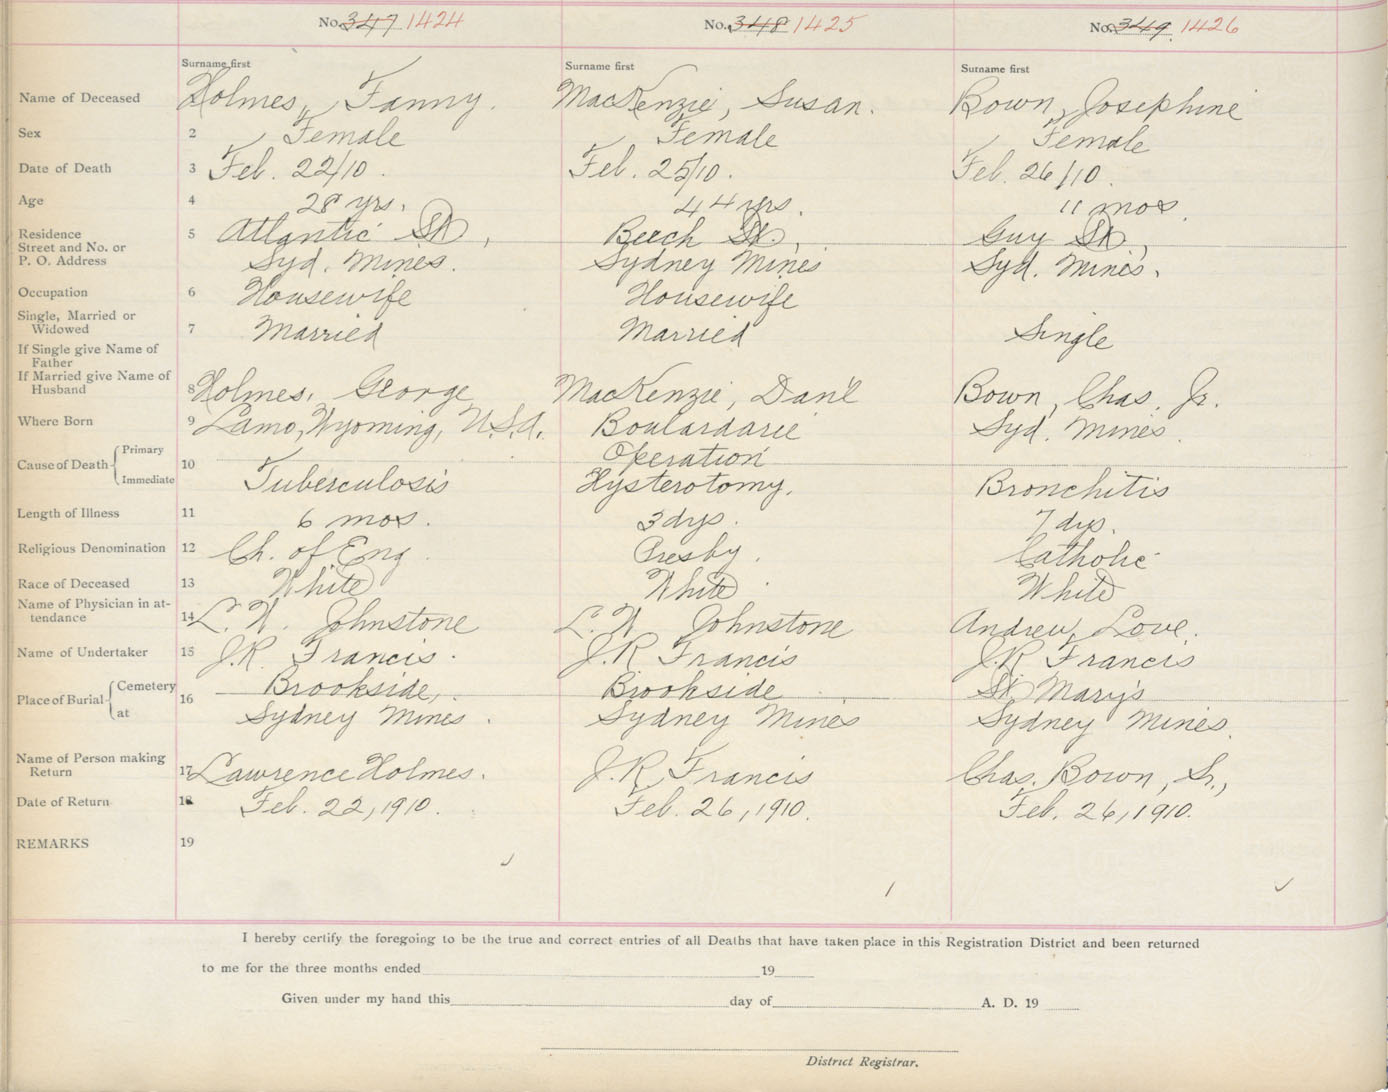 No. 347 1424 No. 348 1425 No. 349 1426
Surname first Surname first Surname first
Name of Deceased Holmes, Fanny. MacKenzie, Susan. Bown, Josephine
Sex 2 Female Female Female
Date of Death 3 Feb. 22/10. Feb. 25/10. Feb. 26/10.
Age 4 28 yrs. 44 yrs. 11 mos.
Residence 5 Atlantic St., Beech St., Guy St.,
Street and No. or
P. O. Address Syd. Mines. Sydney Mines Syd. Mines.
Occupation 6 Housewife Housewife
Single, Married or
Widowed 7 Married Married Single
If Single give Name of
Father
If Married give Name of
Husband 8 Holmes, George MacKenzie, Dan'l Bown, Chas. Jr.
Where Born 9 Lamo, Wyoming, U.S.A. Boulardarie Syd. Mines.
Primary Operation
Cause of Death 10
Immediate Tuberculosis Hysterotomy. Bronchitis
Length of Illness 11 6 mos. 3 dys. 7 dys.
Religious Denomination 12 Ch. of Eng. Presby. Catholic
Race of Deceased 13 White White White
Name of Physician in at-
tendance 14 L. W. Johnstone L. W. Johnstone Andrew Love.
Name of Undertaker 15 J.R. Francis. J.R. Francis J.R. Francis
Cemetery Brookside, Brookside St. Mary's
Place of Burial 16
at Sydney Mines. Sydney Mines Sydney Mines.
Name of Person making
Return 17 Lawrence Holmes. J.R. Francis Chas. Bown, Sr.,
Date of Return 18 Feb. 22, 1910. Feb. 26, 1910. Feb. 26, 1910.
REMARKS 19
I hereby certify the foregoing to be the true and correct entries of all Deaths that have taken place in this Registration District and been returned
to me for the three months ended 19
Given under my hand this day of A. D. 19
District Registrar.